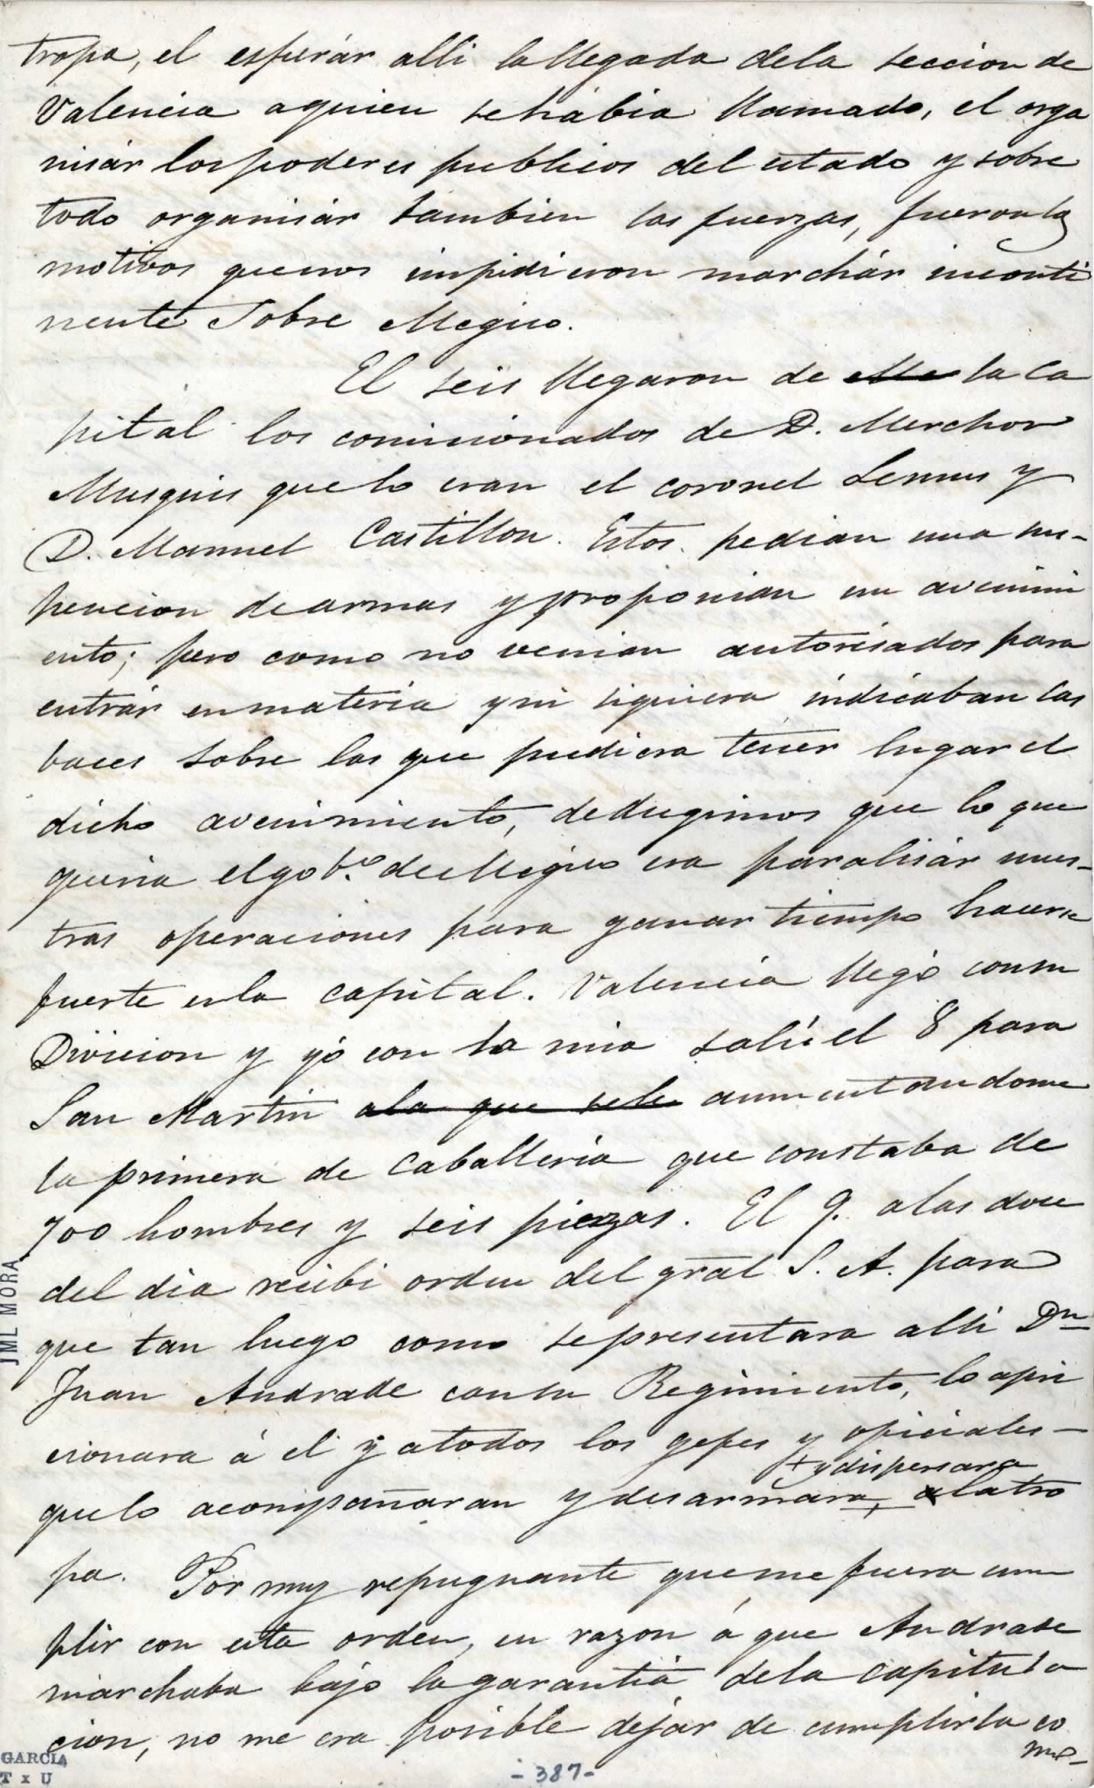 tropa, el esperár alli la llegada dela seccion de
Valencia aquien sehabia llamado, el orga
nisár los poderes publicos del estado y sobre
todo organisár tambien las fuerzas, fueron los
motivos quenos impidieron marchár inconti
nente Sobre Megico.
El seis llegaron de Me la Ca
pital los comicionados de D. Merchor
Musquis que lo eran el coronel Lemus y
D. Manuel Castillon. Estos pedian una sus-
pencion de armas y proponian un avenimi
ento; pero como no venian autorisados para
entrár enmateria y ni siquiera indicaban las
baces sobre las que pudiera tener lugar el
dicho avenimiento, dedugimos que lo que
queria el gob.o de Megico era paralisár nues-
tras operaciones para ganar tiempo hacerse
fuerte en la capital. Valencia llegó con su
Divicion y yó con la mia salí el 8 para
San Martin ala que sele aumentandome
la primera de Caballeria que constaba de
700 hombres y seis piezas. El 9. alas doce
del dia recibi orden del gral S. A. para
que tan luego como sepresentara alli Dn
Juan Andrade con su Regimiento, lo apri
cionara á el y atodos los gefes y oficiales-
+ y dispersara
que lo acompañaran y desarmara, a la tro
pa. Por muy repugnante queme fuera cum
plir con esta orden, en razon á que Andrade
marchaba bajo la garantiá dela capitula
cion, no me era posible dejár de cumplirla co
mo-
JML MORA
GARCIA
T x U
- 387-